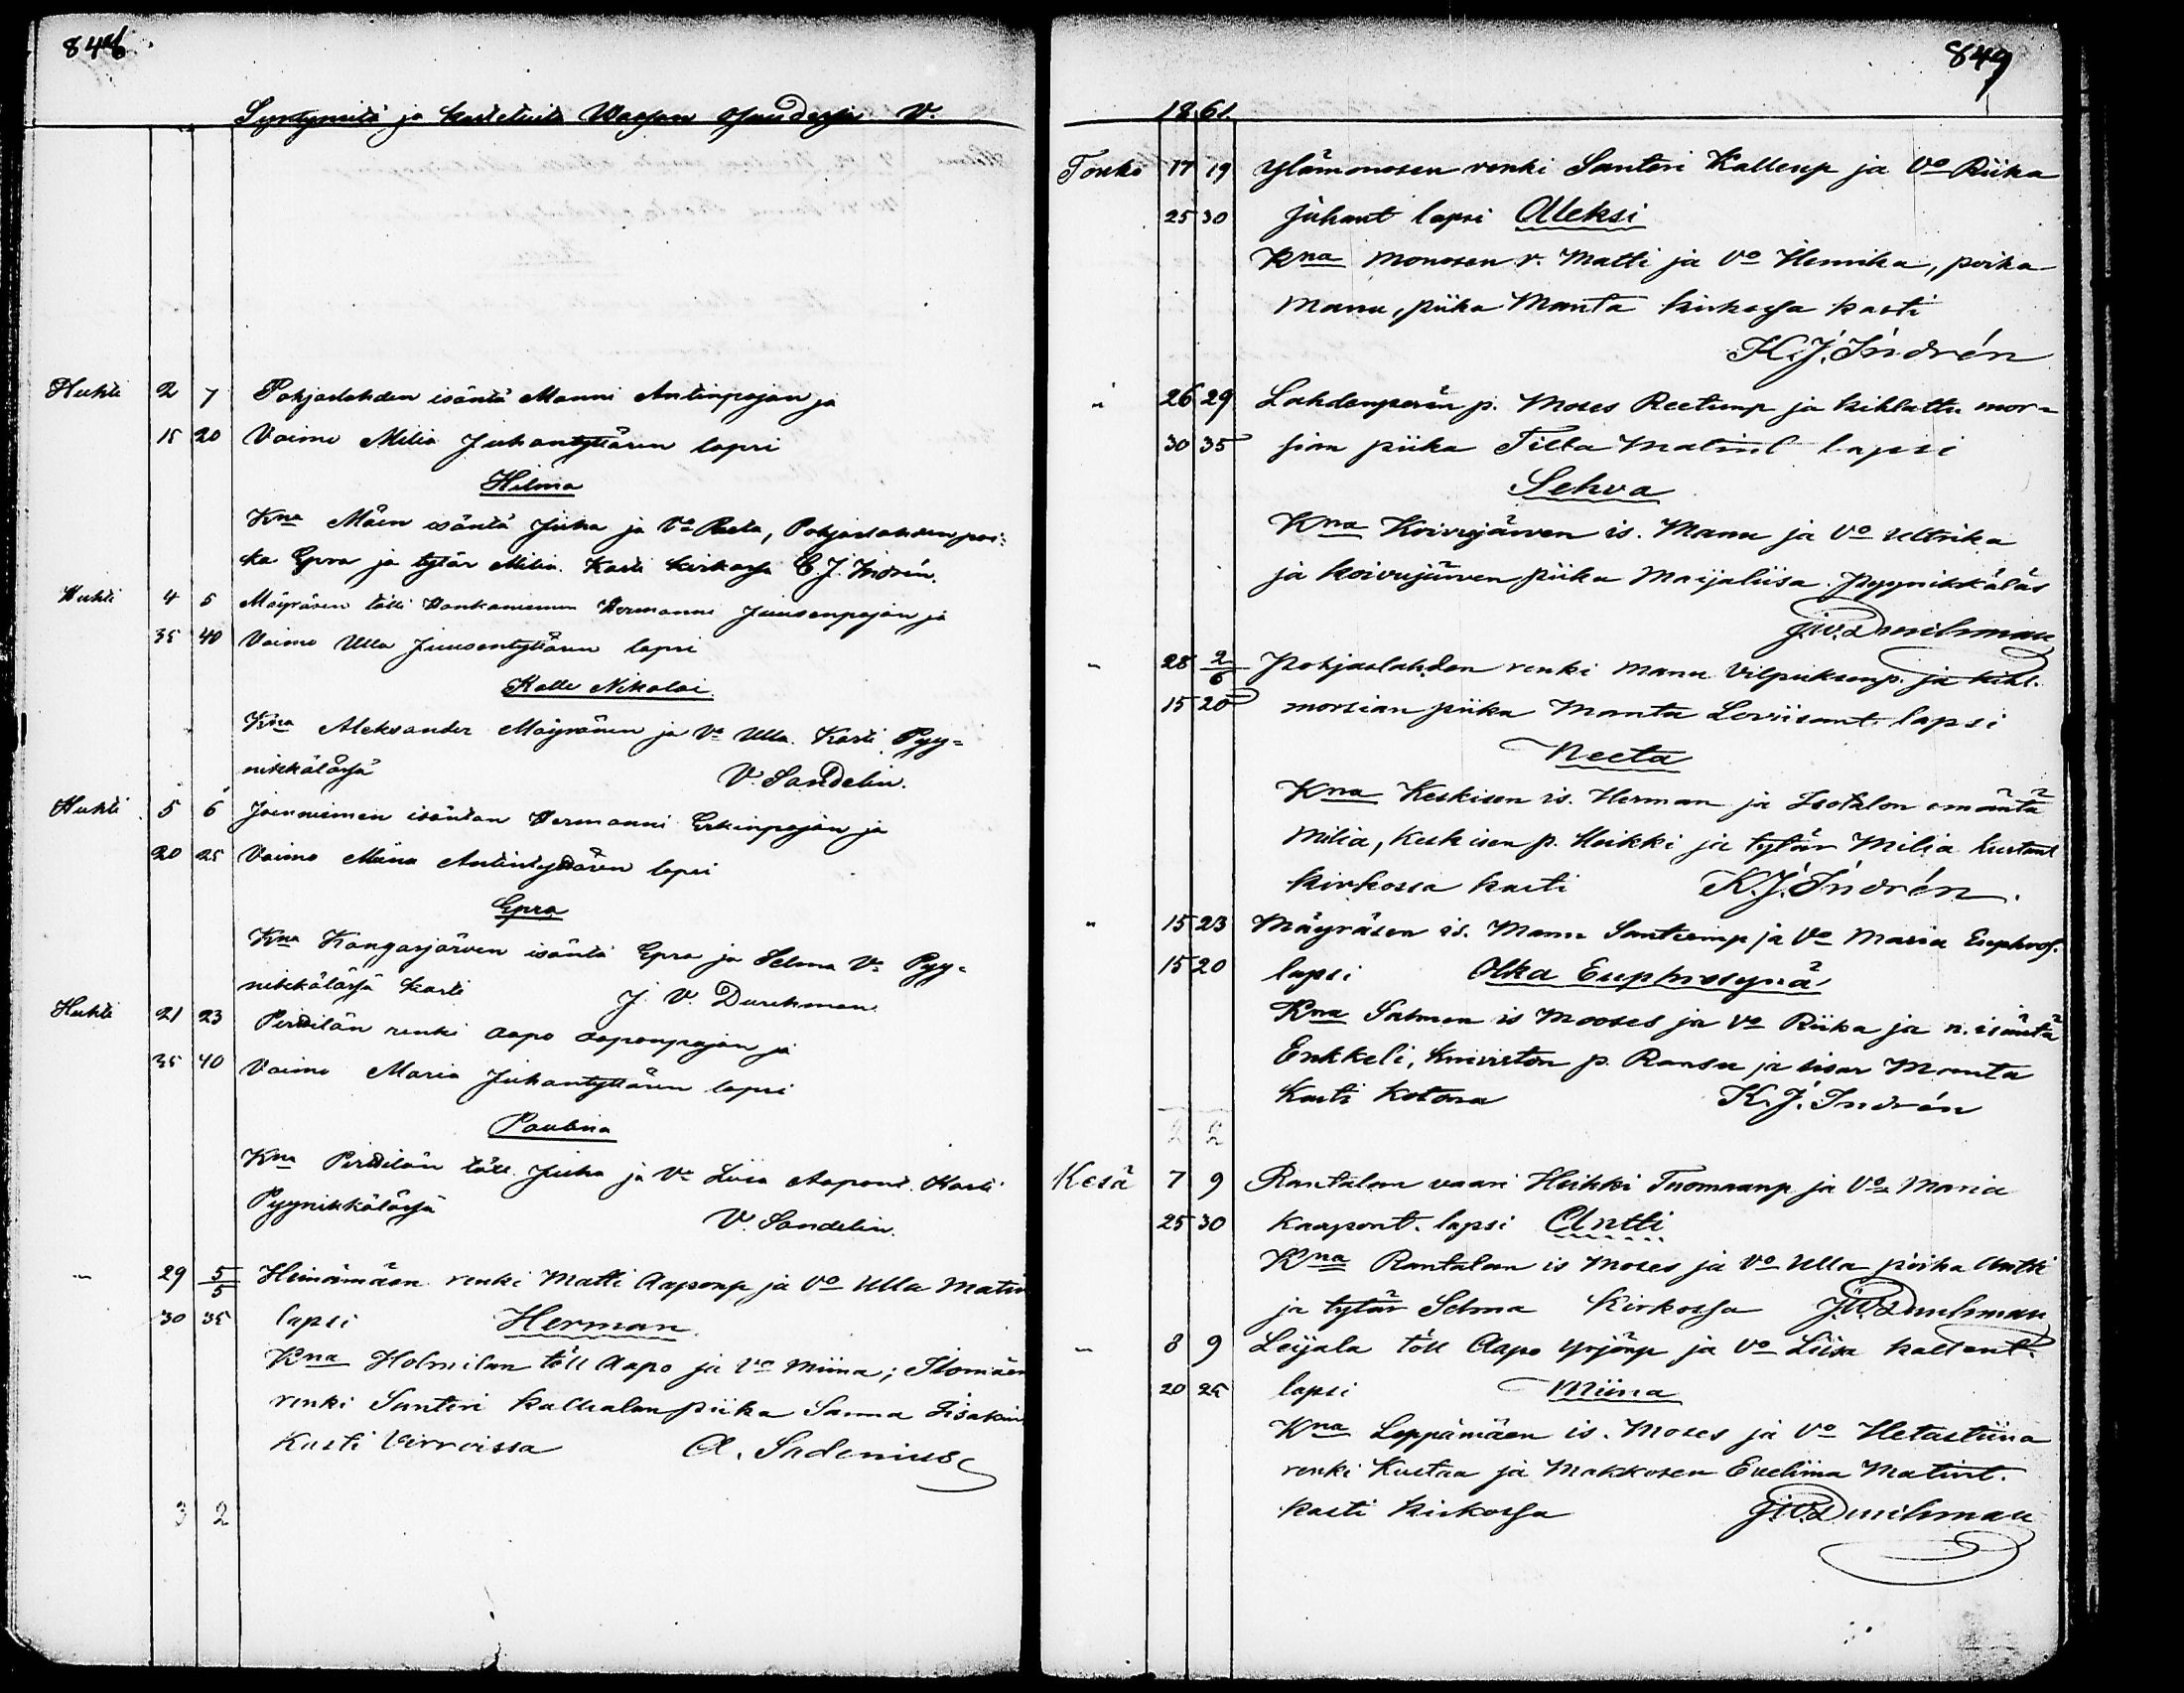 848
Syntyneitä ja kastetuita V.
Huhti 2 7 Pohjoslahden isäntä Manni Antinpojan ja
15 20 Vaimo Milia Juhantyttären lapsi
Hilma
Kna Mäen isäntä Juha ja Vo Reeta, Pohjoslahden poi-
ka Epra ja tytär Milia. Kasti kirkossa C. J. Indrén.
Huhti 4 5 Mäyräsen tölli Hankaniemen Hermanni Juusenpojan ja
35 40 Vaimo Ulla Juusentyttären lapsi
Kalle Nikolai
Kna Aleksander Mäyränen ja Vo Ulla. Kasti Pyy-
nikkälässä V. Sandelin.
Huhti 5 6 Joenniemen isäntän Hermanni Erkinpojan ja
20 25 Vaimo Miina Antintyttären lapsi
Epra
Kna Kangasjärven isäntä Epra ja Selma Vo Pyy-
nikkälässä kasti J. V. Durchman
Huhti 21 23 Pirttilän renki Aapo Aaponpojan ja
35 40 Vaimo Maria Juhantyttären lapsi
Paulina
Kna Pirttilän töll. Juha ja Vo Liisa Aapont. Kasti
Pyynikkälässä V. Sandelin.
" 29 5/5 Heinämäen renki Matti Aaponp ja Vo Ulla Matin
30 35 lapsi Herman
Kna Holmilan töll Aapo ja Vo Miina;
renki Santeri Kallualan piika Sanna
Kasti Virroissa A. Sadenius
3 2
849
1861.
Touko 17 19 Ylämonosen renki Santeri Kallenp ja Vo Riika
25 30 Juhant lapsi Alleksi
Kna Monosen r. Matti ja Vo Hennika, poika
Manu, piika Manta kirkossa kasti
K. J. Indrén
" 26 29 Lahdenperän p. Moses Reetunp ja kihlattu mor-
30 35 sian piika Tilta Matint lapsi
Sehva
Kna Koivujärven is. Manu ja Vo Ultrika
ja Koivujärven piika Maijaliisa. Pyynikkäläs
J. W. Durchman
" 28 2/6 Pohjaslahden renki Manu Vilpuksenp. ja kihl.
15 20 morsian piika Manta Loviisant. lapsi
Neeta
Kna Keskisen is. Herman ja Isotalon emäntä
Milia, Keskisen p. Heikki ja tytär Milia kustant
kirkossa kasti K. J. Indrén.
" 15 23 Mäyräsen is. Manu Santerinp ja Vo Maria Euphros.
15 20 lapsi Olka Euphrosynä
Kna Salmen is Mooses ja Vo Riika ja n. isäntä
Enkkeli, Kiviristön p. Ransu ja sisar Manta
Kasti kotona K. J. Indrén
2 2
Kesä 7 9 Rantalan vaari Heikki Tuomaanp ja Vo Maria
25 30 Kaapont. lapsi Antti
Kna Rantalan is Moses ja Vo Ulla poika Antti
ja tytär Selma Kirkossa J. W. Durchman
" 8 9 Leijala töll Aapo Yrjönp ja Vo Liisa
20 25 lapsi Miina
Kna Leppämäen is. Moses ja Vo Hetastiina
renki Kustaa ja Makkosen Eveliina Matint.
kasti kirkossa J. W. Durchman